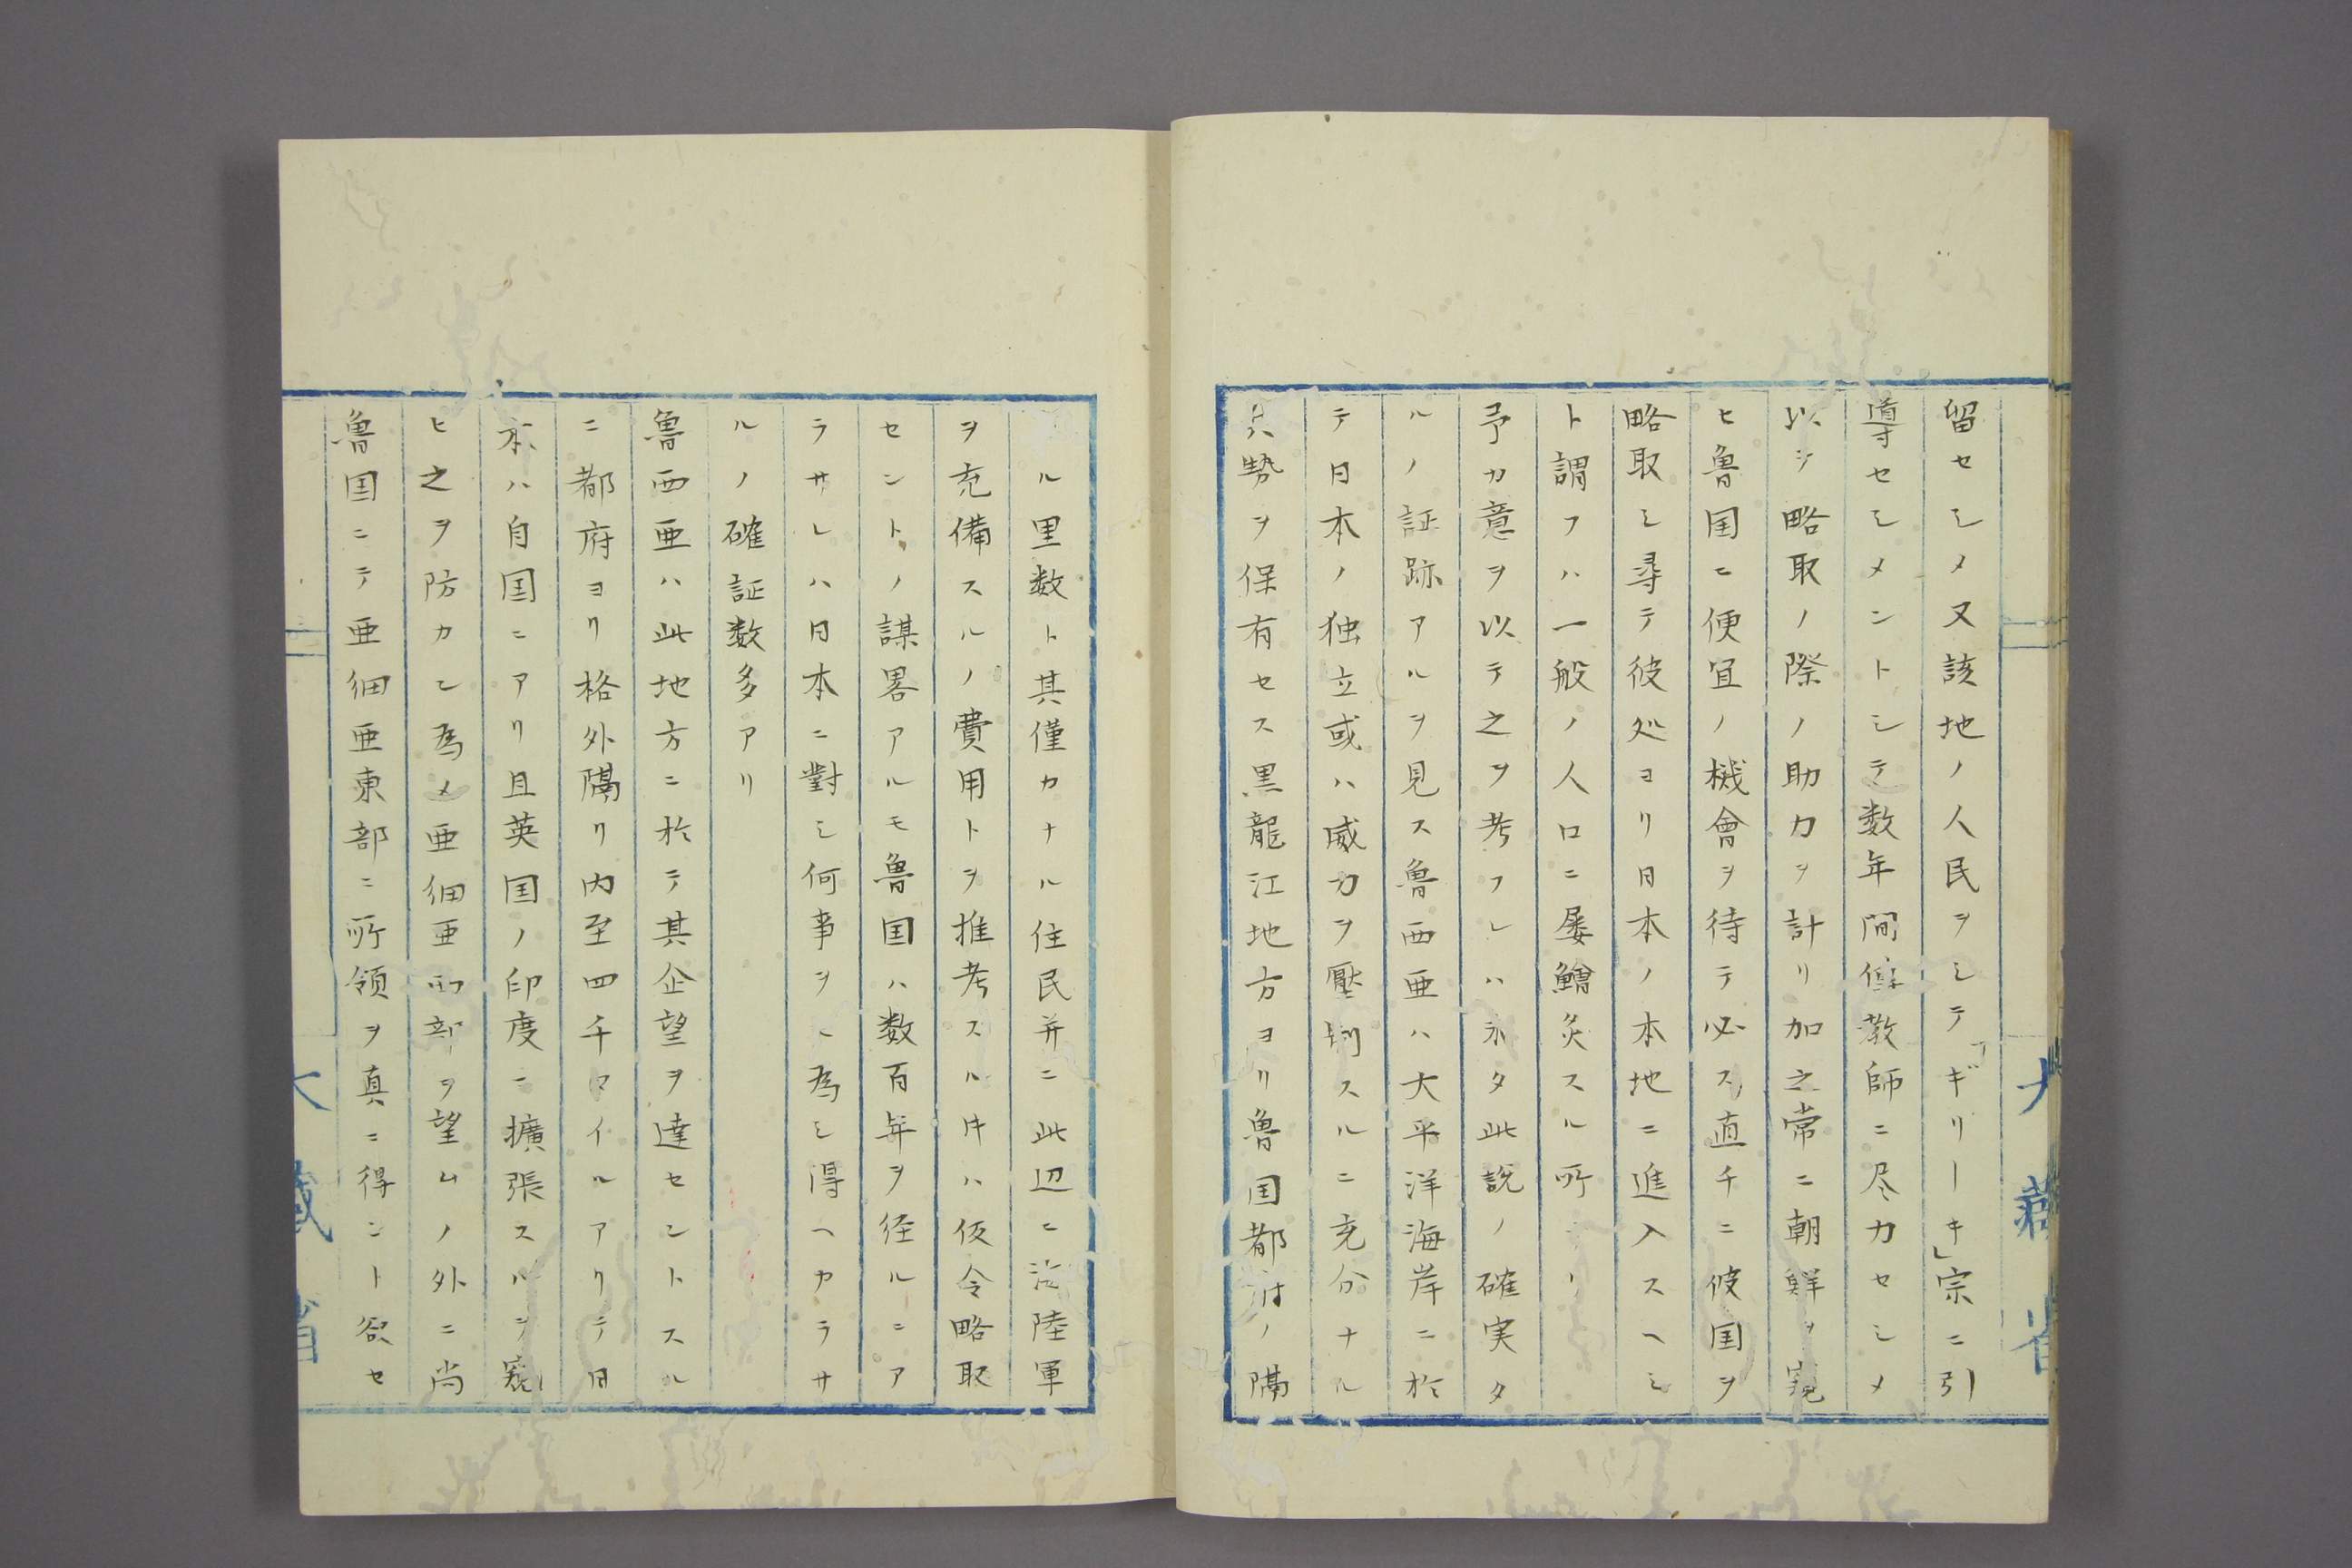 留セシメ又該地ノ人民ヲシテ「ギリーキ」宗ニ引
導セシメントシテ数年間傳教師ニ尽力セシメ
以テ略取ノ際ノ助力ヲ計リ加之常ニ朝鮮ヲ窺
ヒ魯国ニ便宜ノ機會ヲ待テ必ス直チニ彼国ヲ
略取シ尋テ彼処ヨリ日本ノ本地ニ進入スヘシ
ト謂フハ一般ノ人口ニ屡鱠炙スル所ナリ
予カ意ヲ以テ之ヲ考フレハ未タ此説ノ確実タ
ルノ証跡アルヲ見ス魯西亜ハ大平洋海岸ニ於
テ日本ノ独立或ハ威力ヲ壓制スルニ充分ナル
兵勢ヲ保有セス黒龍江地方ヨリ魯国都府ノ隔
ル里数ト其僅カナル住民并ニ此辺ニ海陸軍
ヲ充備スルノ費用トヲ推考スル片ハ仮令略取
セントノ謀畧アルモ魯国ハ数百年ヲ径ルニア
ラサレハ日本ニ對シ何事ヲヽ為シ得ヘカラサ
ルノ確証数多アリ
魯西亜ハ此地方ニ於テ其企望ヲ達セントスル
ニ都府ヨリ格外隔リ内至四千マイルアリテ日
本ハ自国ニアリ且英国ノ印度ニ擴張スルヲ窺
ヒ之ヲ防カン為メ亜細亜西部ヲ望ムノ外ニ尚
魯国ニテ亜細亜東部ニ所領ヲ真ニ得ント欲セ
大藏省
大藏省